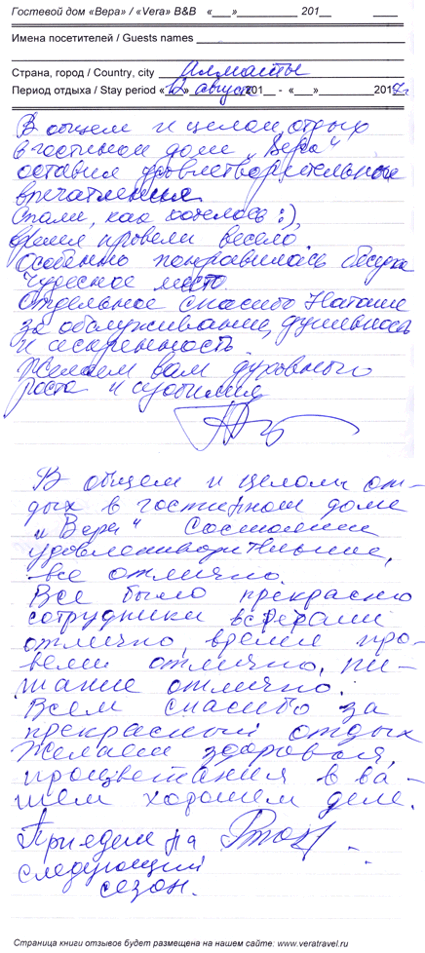 Гостевой дом «Вера» / «Vera» B&B «___»__________ 201__ ____
Имена посетителей / Guests names
Страна, город / Country, city Алматы
Период отдыха / Stay period «12» августа 201__ - «___»_________ 2014г.
В общем и целом, отдых
в гостином доме „Вера“
оставил удовлетворительное
впечатления
Спали, как хотелось :),
время провели весело,
Особенно понравилась беседка
Чудесное место.
Отдельное спасибо Наташе
за обслуживание, душевность
и искренность.
Желаем вам духовного
роста и изобилия
В общем и целом от-
дых в гостинном доме
„Вера“
удовлетворительные,
все отлично.
Все было прекрасно
сотрудники
отлично, время про-
вели отлично, пи-
тание отлично.
Всем спасибо за
прекрасный отдых
Желаем здоровья,
процветания в ва-
шем хорошем деле.
Приедем на
следующий
сезон.
Страница книги отзывов будет размещена на нашем сайте: www.veratravel.ru